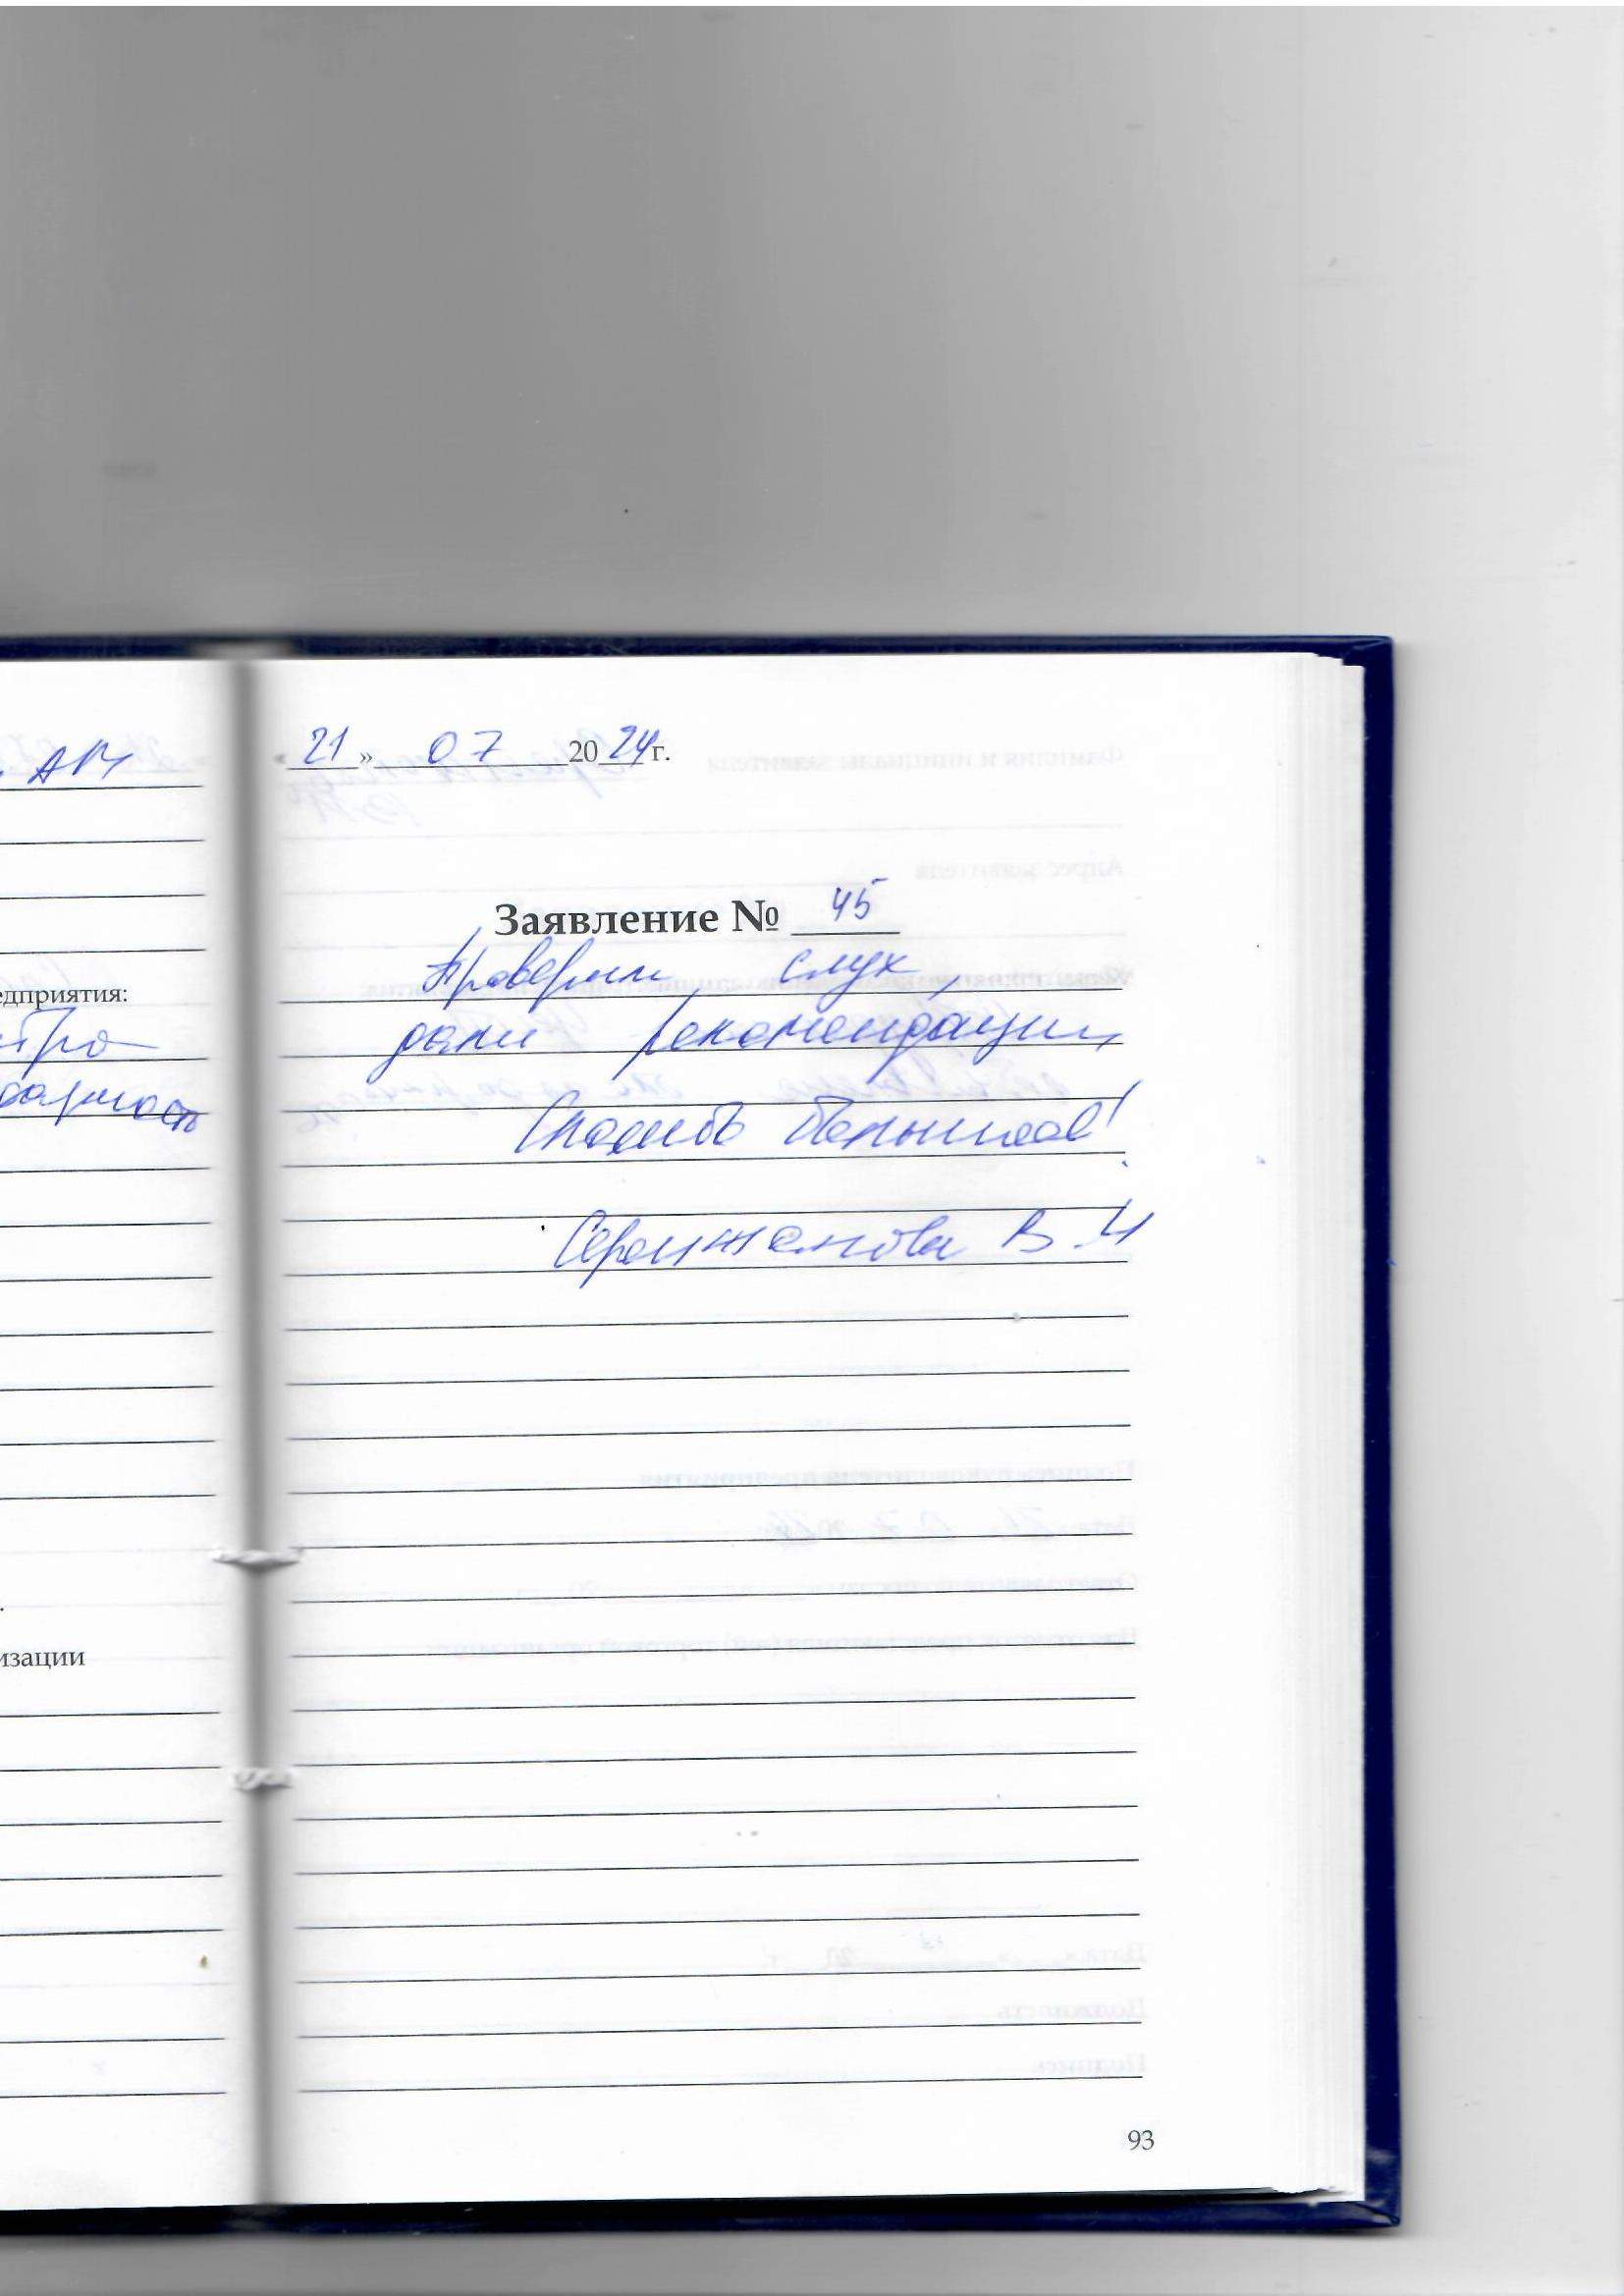 АМ
едприятия:
изации
« 21 » 07 2024 г.
Заявление № 45
Проверили слух
дали рекомендации,
Спасибо большое!
В.И
93